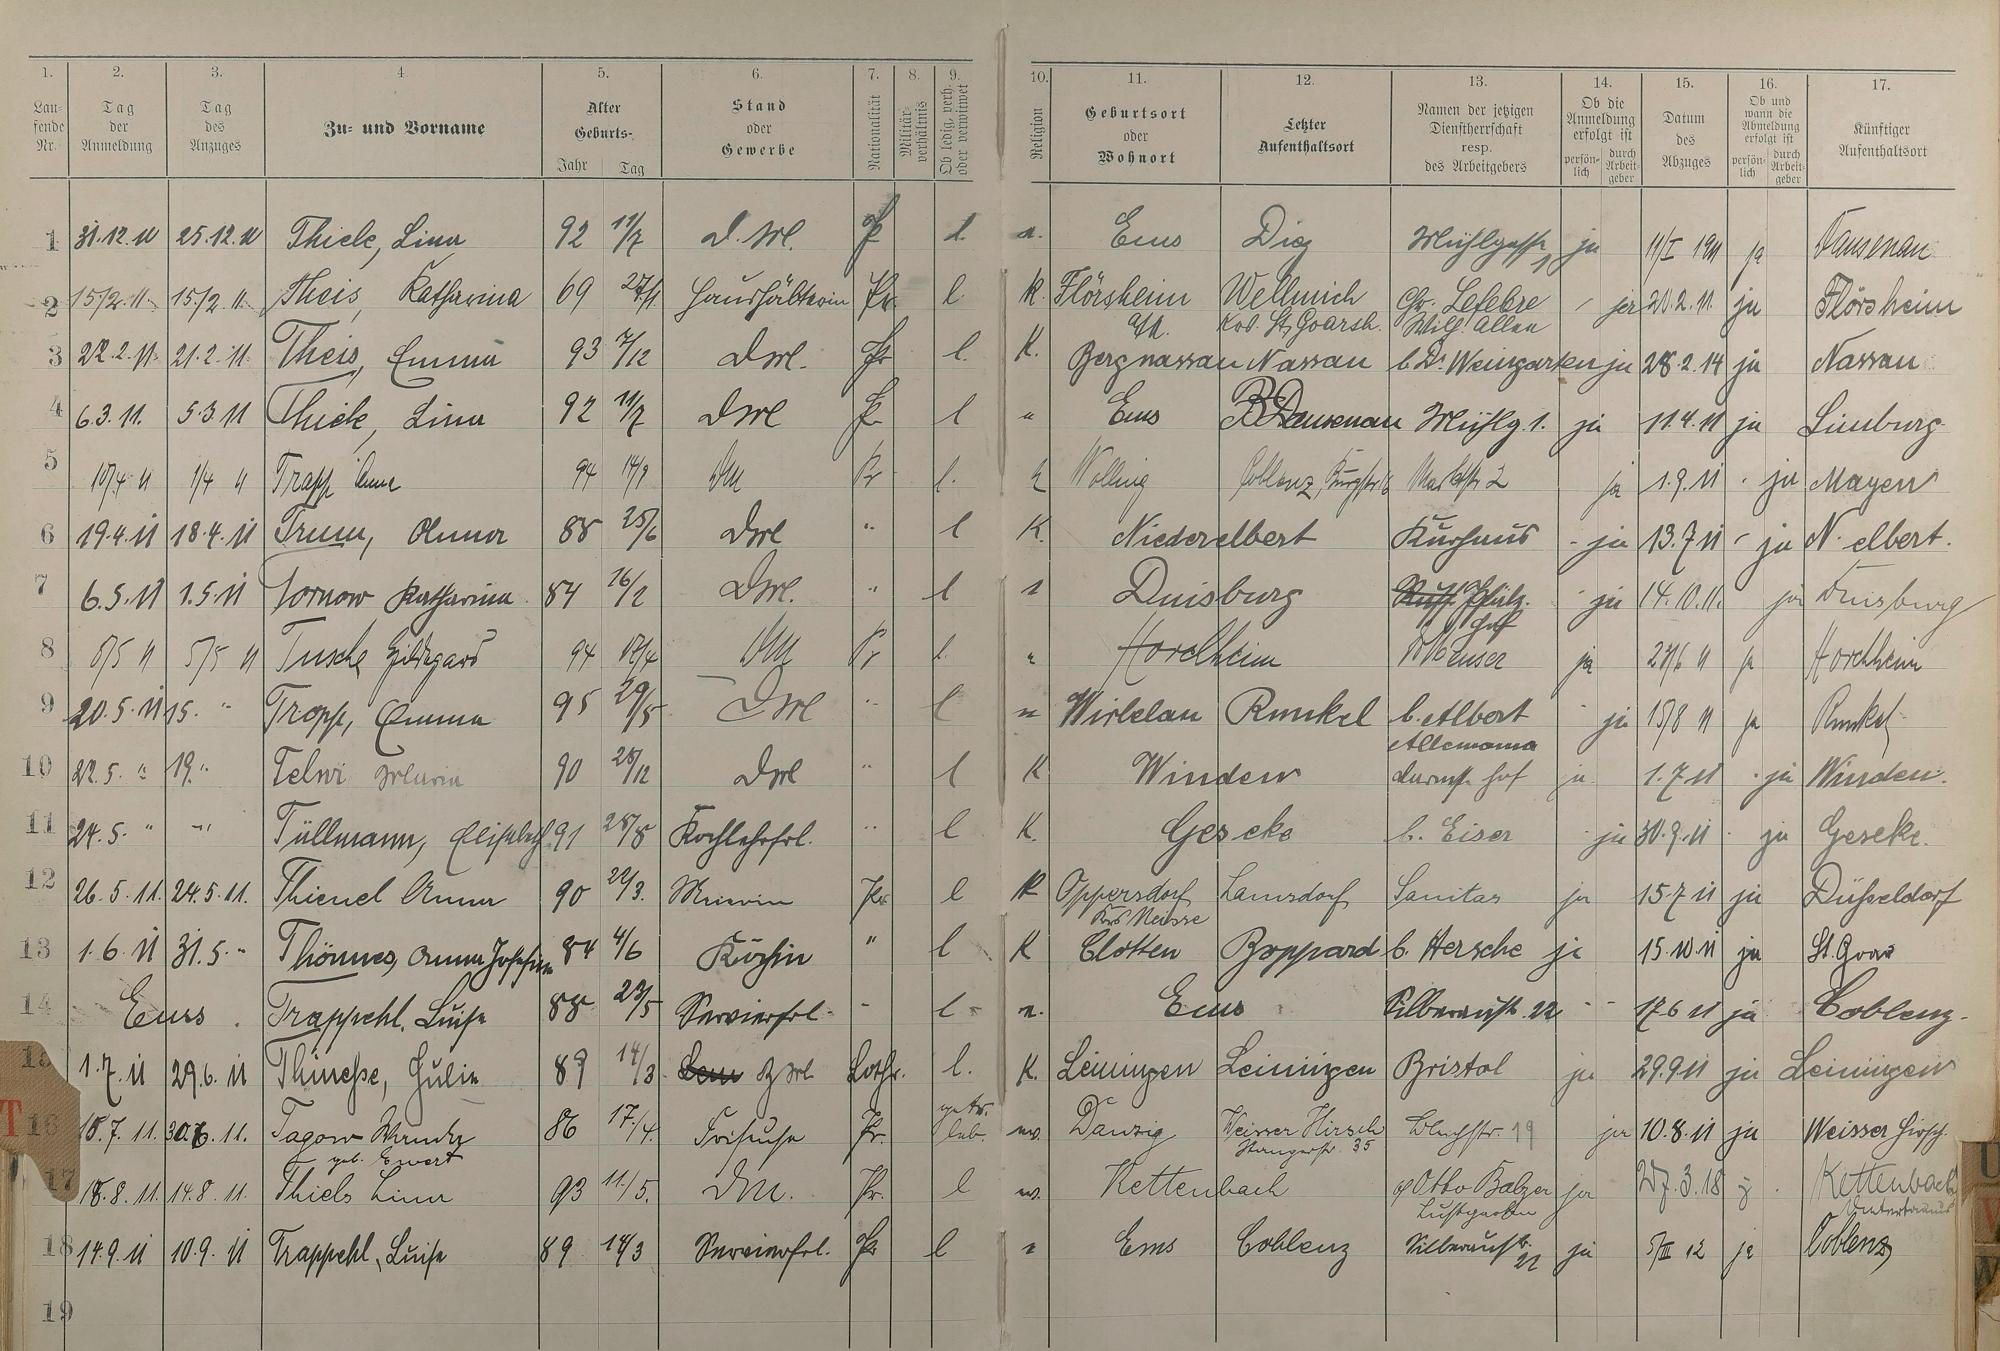 1. 2. 3. 4. 5. 6. 7. 8. 9. 10. 11. 12. 13. 14. 15. 16. 17.
Lau-fende Nr. Tag der Anmeldung Tag des Anzuges Zu- und Vorname Alter Geburts- Jahr Tag Stand oder Gewerbe Nationalität Militär-verhältnis Ob ledig, verh. oder verwitwet Religion Geburtsort oder Wohnort Letzter Aufenthaltsort Namen der jetzigen Dienstherrschaft resp. des Arbeitgebers Ob die Anmeldung erfolgt ist persön-lich durch Arbeit-geber Datum des Abzuges Ob und wann die Abmeldung erfolgt ist persön-lich durch Arbeit-geber Künftiger Aufenthaltsort
1 31.12.10 25.12.10 Thiele, Lina 92 11/7 D.M. Pr l. Ems Diez Mühlgasse ja 11/I 1911 ja Dausenau
2 15/2 11. 15./2. 11. Theis, Katharina 69 Haushälterin Pr. l. K. Flörsheim Wellmich Chr. Lefebre ja 20.2.11. ja Flörsheim
a/M. St. Goarsh. Villa Allen
3 22.2.11. 21.2.11. Theis, Emma 93 7/12 DMl. Pr l. K. Bergnassau Nassau b. Dr. Weingarten ja 28.2.14 ja Nassau
4 6.3.11. 5.3 11 Thiele, Lina 92 11/7 DMl Pr l " Ems Dausenau Mühlg. 1. ja 11.4.11 ja Limburg
5 11 1/4 11 Trapp Anna 94 DM Pr l. Coblenz, Marktstr 2 ja 1.9.11 ja Mayen
6 19.4.11 18.4.11 Trum, Anna 88 25/6 DMl " l K. Niederelbert Kurhaus - ja 13.7 11 ja N. elbert.
7 6.5.11 1.5.11 Tornow Katharina 84 16/2 DMl. " l Duisburg ja 14.10.11. ja Duisburg
8 11 5/5 11 Tusche Hildegard 94 DM Pr l. " Horchheim ja 27/6 11 ja Horchheim
9 20.5.11 15. " Tropp, Emma 95 29/5 DMl " l Wirbelau Runkel b. Albert ja 15/8 11 ja Runkel
Allemania
10 22.5. " 19. " Maria 90 28/12 DMl " l K Winden Darmst. Hof ja 1.7.11 ja Winden.
11 24.5. " " Tüllmann, Elisabeth 91 28/8 Kochlehrfrl. " l K. Geseke b. Eiser ja 30.9.11 ja Geseke.
12 26.5.11. 24.5.11. Thienel Anna 90 22/3. Pr. l K Oppersdorf Lamsdorf Sanitas ja 15 7 11 ja Düsseldorf
Krs Neisse
13 1.6 11 31.5. " Thönnes, Anna Josefine 84 4/6 Köchin " l K Clotten Boppard b. Hersche ja 15.10.11 ja St. Goar
14 Ems Trappehl, Luise 88 23/5 Servierfrl. - l Ems Silberaustr. 22 17.6 11 ja Coblenz.
15 1.7.11 29.6.11 Julie 89 14/3 Lothr. l. K. Leiningen Leiningen Bristol ja 29.9 11 ja Leiningen
16 18.7.11. 11. Tagow Wanda 86 17./4. Friseuse Pr. getr. leb. Danzig Weisser Hirsch 19 ja 10.8.11 ja Weisser Hirsch.
geb. Ewert 35
17 18.8.11. 14.8 11. Thiels Lina 93 11./5. DM. Pr. l Kettenbach Otto Balzer ja 27.3.18 Kettenbach
Lustgarten Untertaunus
18 14.9.11 10.9.11 Trappehl, Luise 89 14/3 Servierfrl. Pr. l Ems Coblenz Silberaustr. 22 ja 5/III 12 ja Coblenz
19